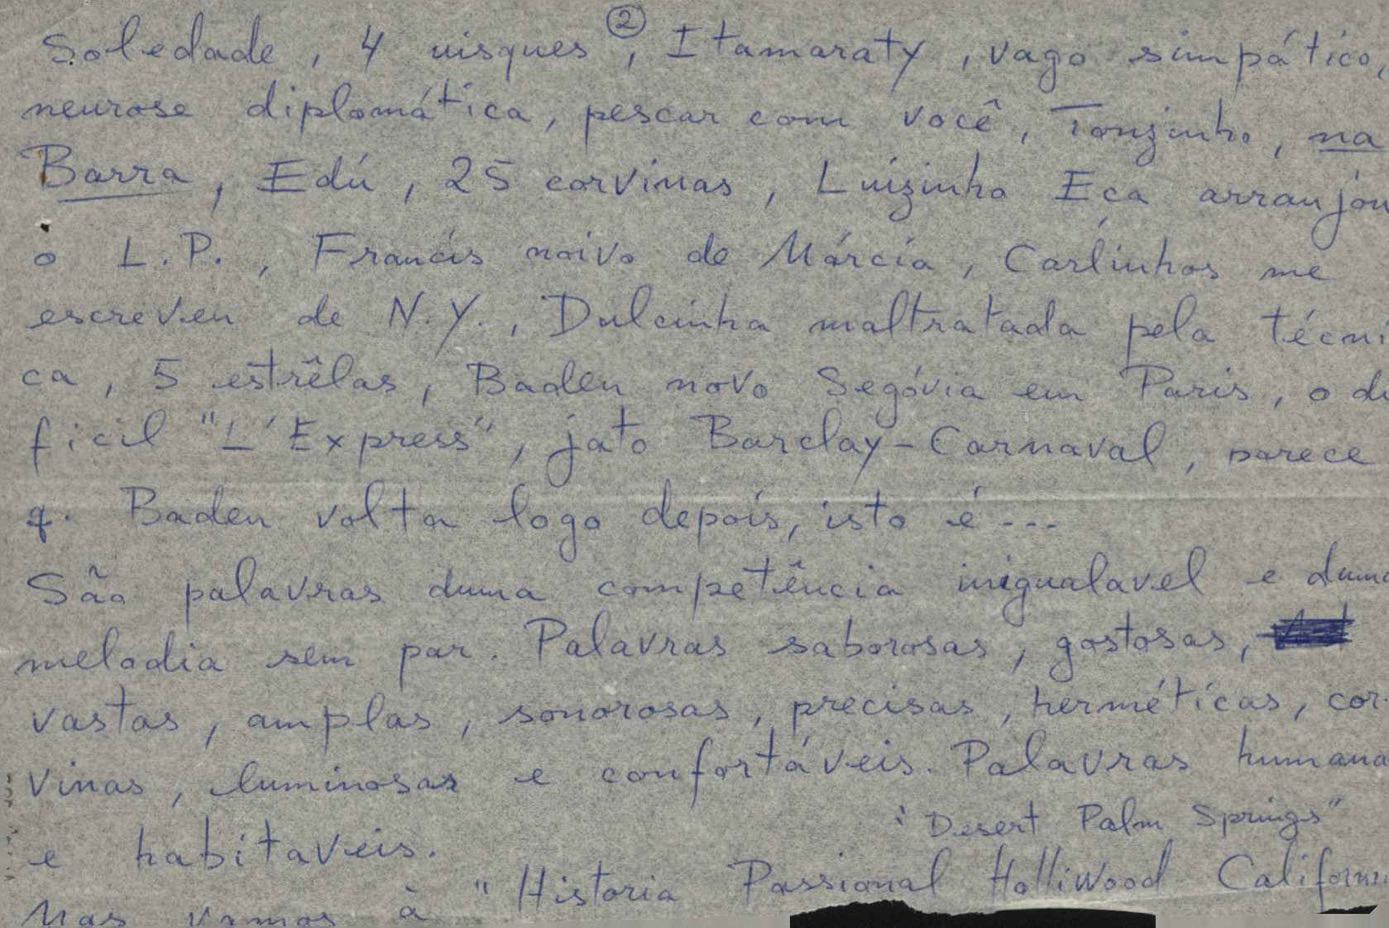 ②
Soledade, 4 uisques, Itamaraty, vago simpático,
neurose diplomática, pescar com você, Tonzinho, na
Barra, Edú, 25 corvinas, Luizinho Eça arranjou
o L.P., Francis noivo de Márcia, Carlinhos me
escreveu de N.Y., Dulcinha maltratada pela técni
ca, 5 estrêlas, Baden novo Segóvia em Paris, o di
ficil "L'Express", jato Barclay-Carnaval, parece
q. Baden volta logo depois, isto é ---
São palavras duma competência inigualavel e duma
melodia sem par. Palavras saborosas, gostosas,
vastas, amplas, sonorosas, precisas, herméticas, cor-
vinas, luminosas e confortáveis. Palavras humana
e habitaveis.
"Desert Palm Springs"
Mas vamos à "Historia Passional Holliwood California